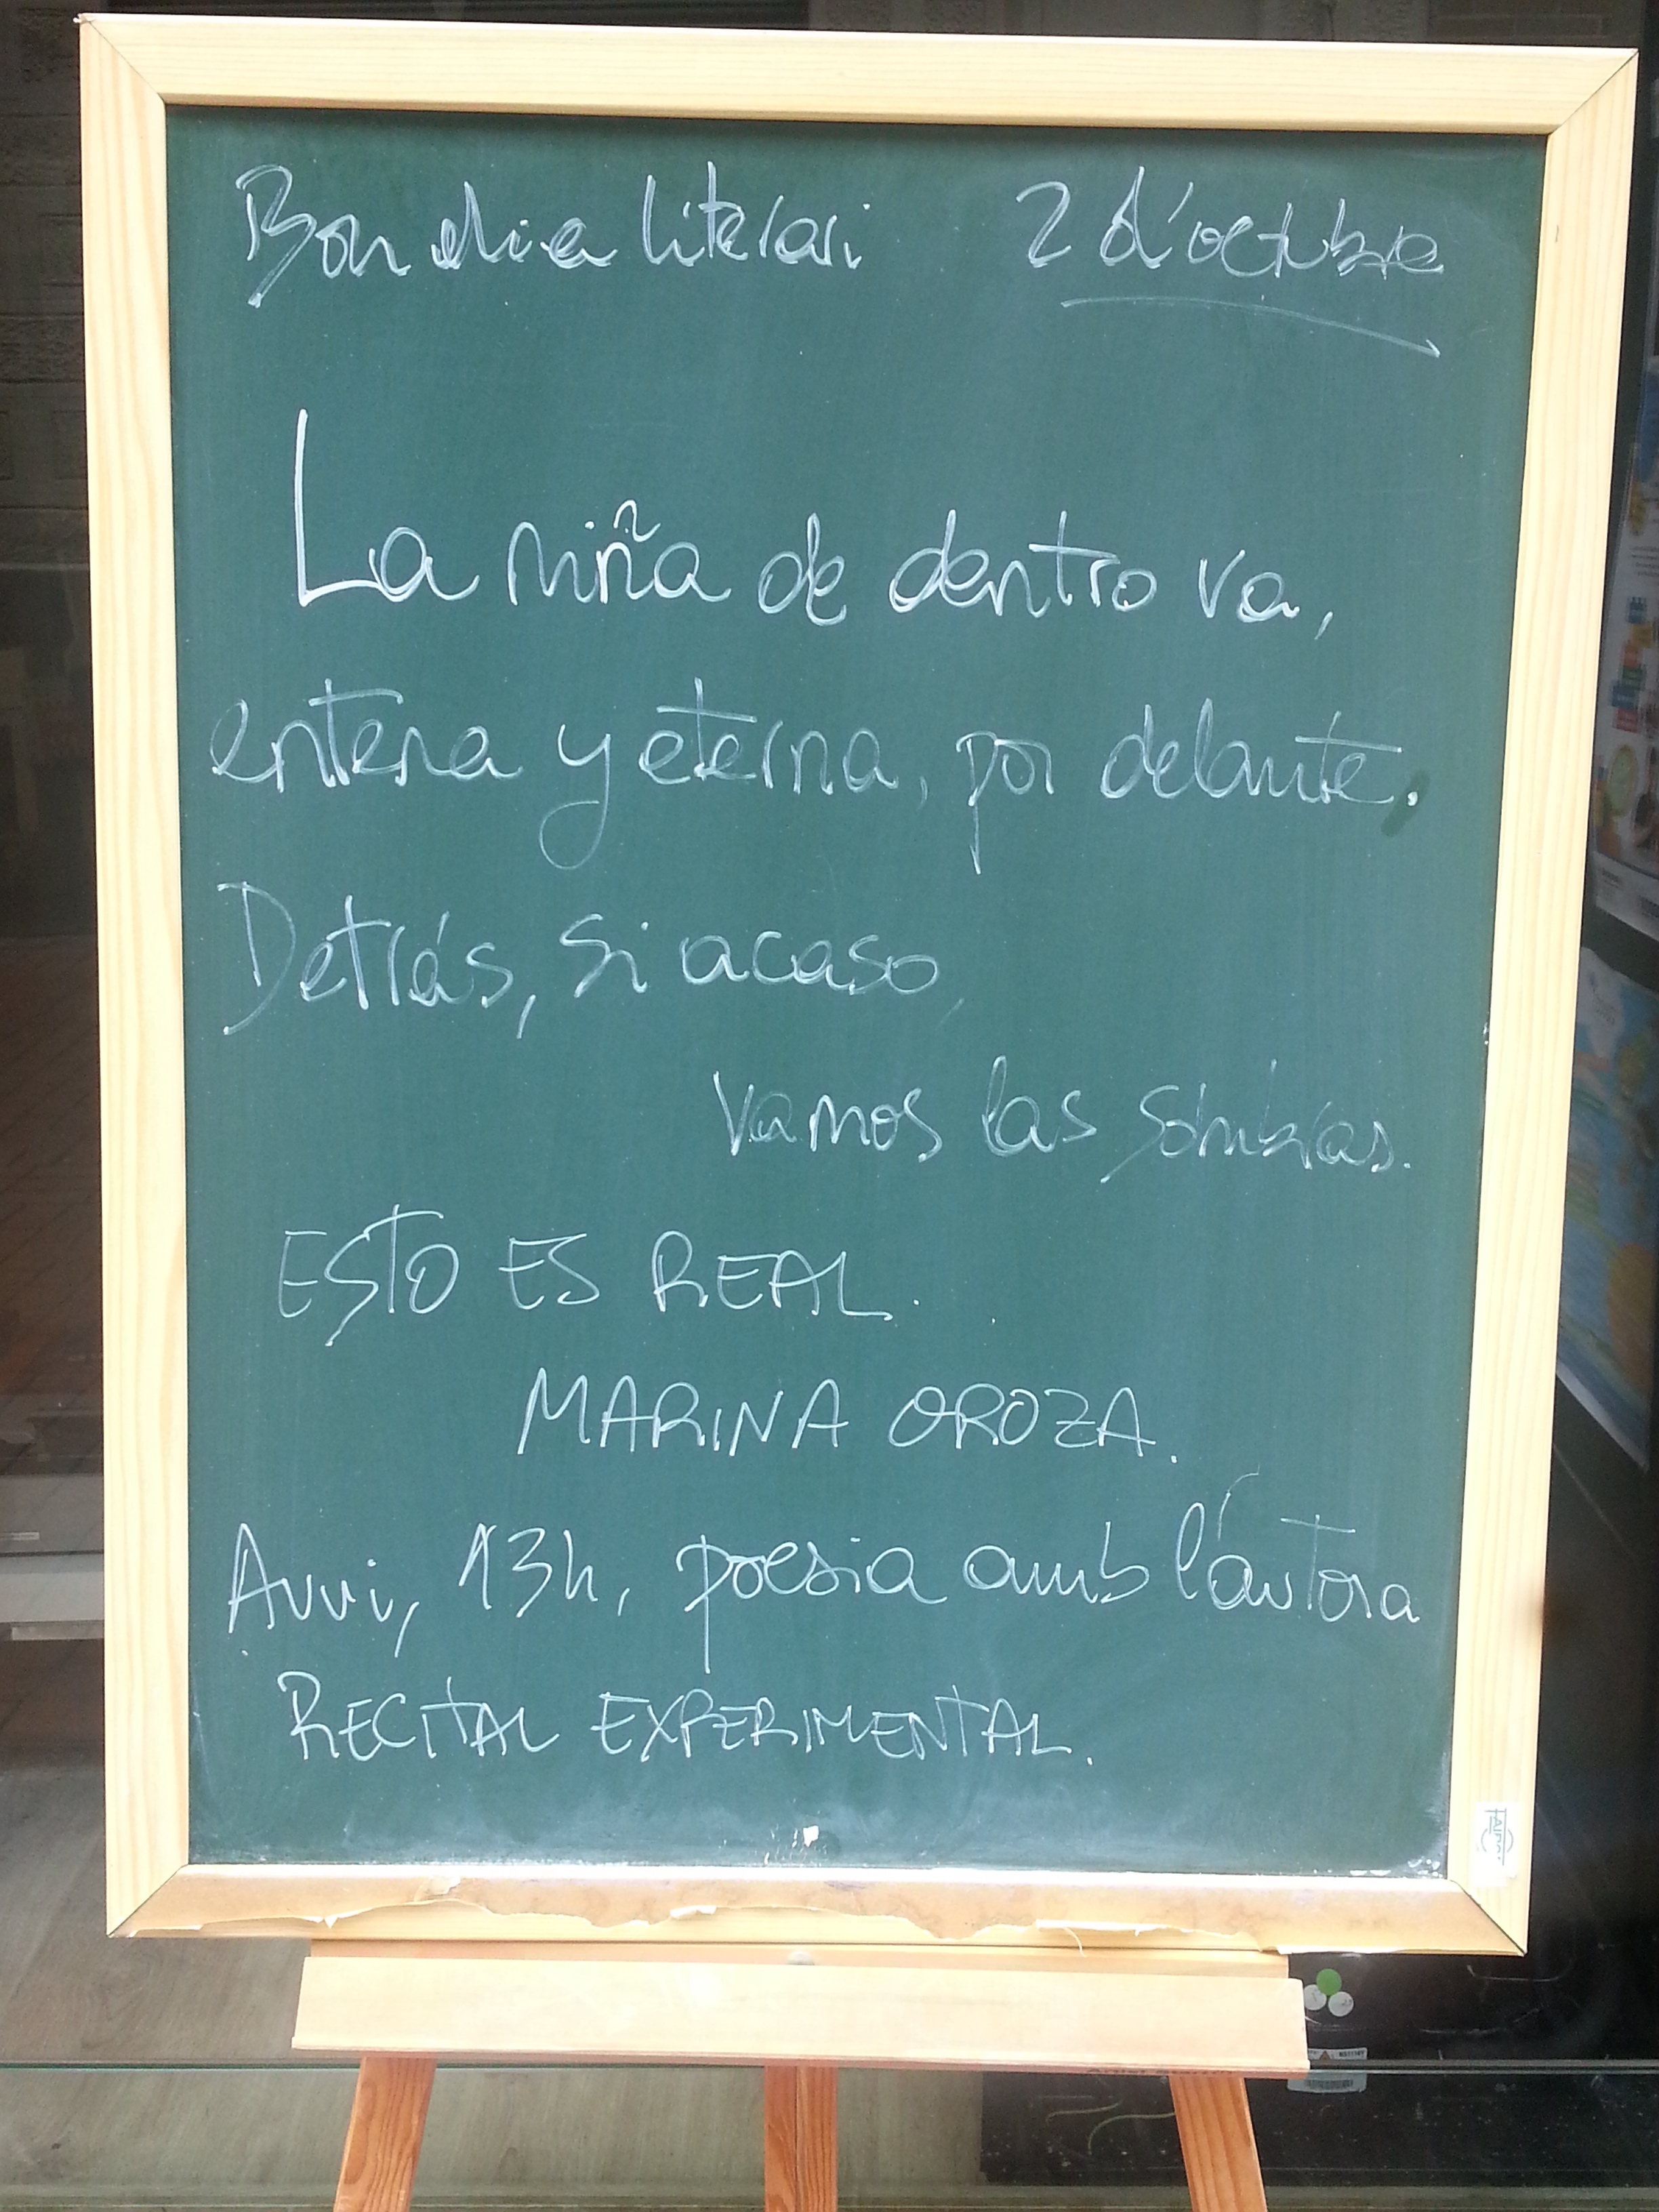 Bon dia literari 2 d'octubre
La niña de dentro va,
entera y eterna, por delante.
Detrás, si acaso,
vamos las sombras.
ESTO ES REAL.
MARINA OROZA.
Avui, 13h, poesia amb l'autora
RECITAL EXPERIMENTAL.